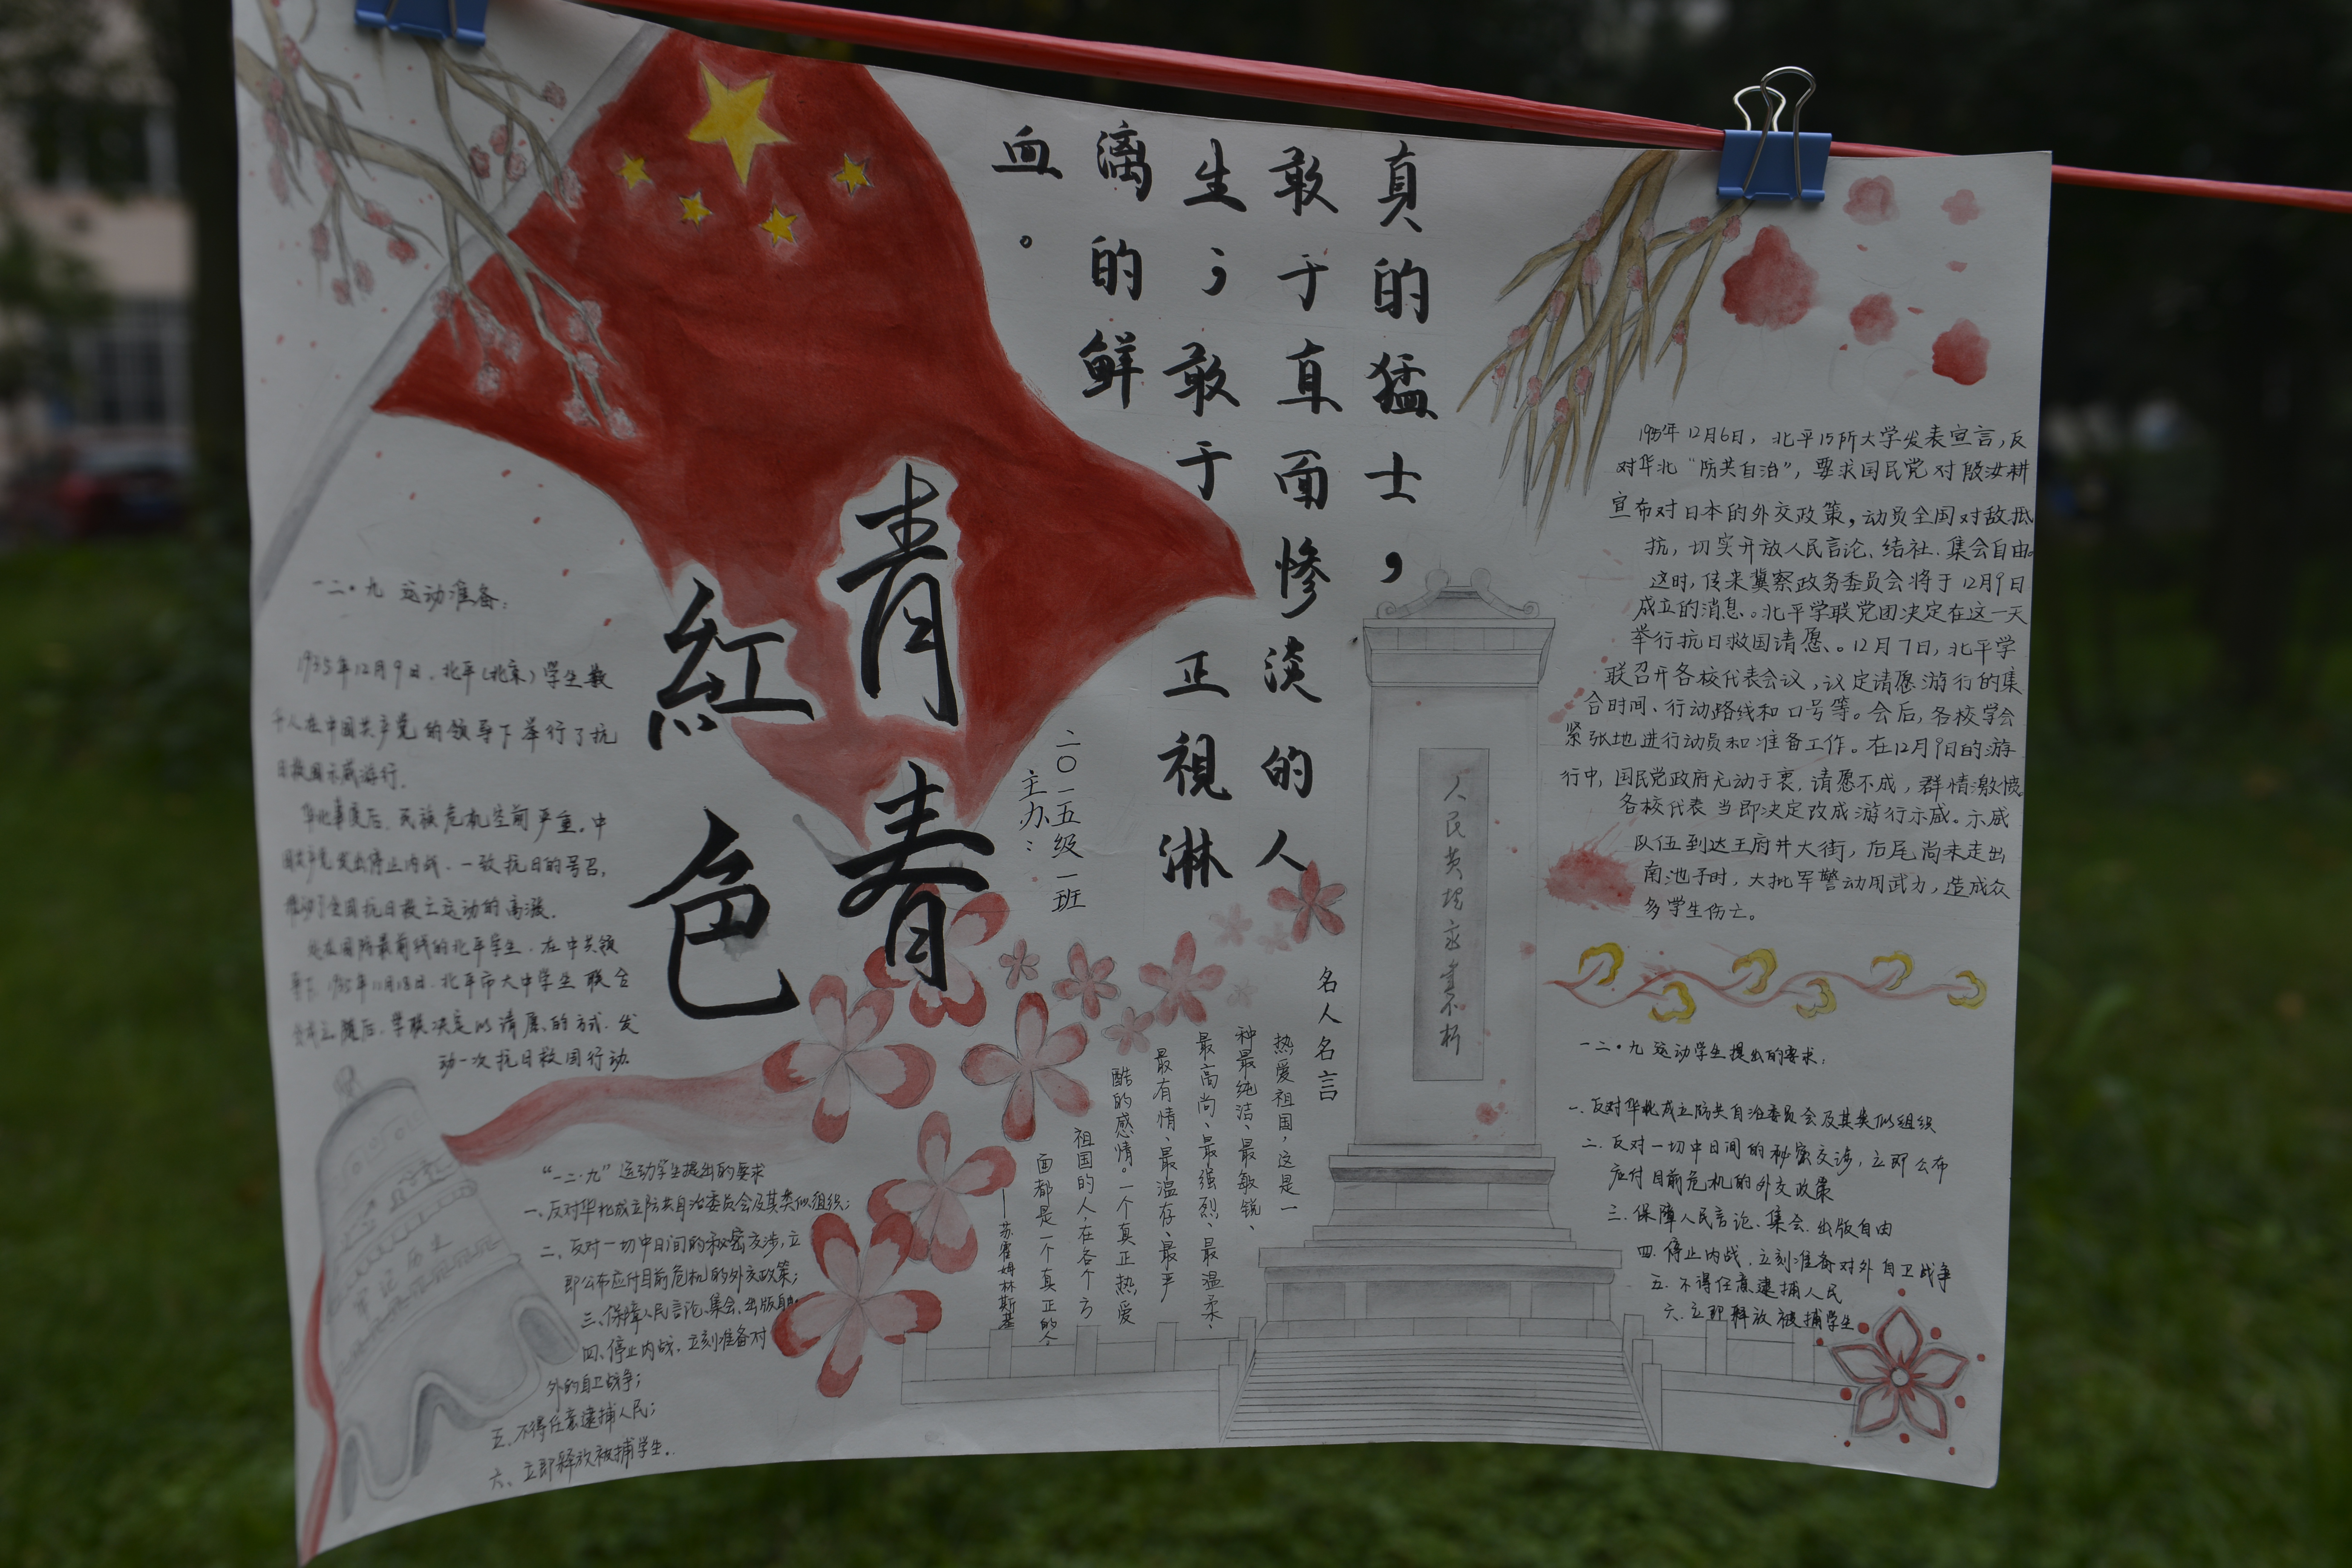 真的猛士，
敢于直面惨淡的人
生；敢于正視淋
漓的鲜
血。
青春
紅色
二〇一五级一班
主办：
一二·九 运动准备：
1935年12月9日，北平（北京）学生数
千人在中国共产党的领导下举行了抗
日救国示威游行.
华北事变后，民族危机空前严重，中
国共产党发出停止内战，一致抗日的号召，
推动了全国抗日救亡运动的高涨.
处在国防最前线的北平学生，在中共领
导下，1935年11月18日，北平市大中学生联合
会成立，随后，学联决定以请愿的方式，发
动一次抗日救国行动.
牢记历史
“一二·九”运动学生提出的要求
一、反对华北成立防共自治委员会及其类似组织；
二、反对一切中日间的秘密交涉，立
即公布应付目前危机的外交政策；
三、保障人民言论、集会、出版自由
四、停止内战，立刻准备对
外的自卫战争；
五、不得任意逮捕人民；
六、立即释放被捕学生.
名人名言
热爱祖国，这是一
种最纯洁、最敏锐、
最高尚、最强烈、最温柔、
最有情、最温存、最严
酷的感情。一个真正热爱
祖国的人，在各个方
面都是一个真正的人
——苏霍姆林斯基
人民英雄永垂不朽
1935年12月6日，北平15所大学发表宣言，反
对华北“防共自治”，要求国民党对殷汝耕
宣布对日本的外交政策，动员全国对敌抵
抗，切实开放人民言论、结社、集会自由。
这时，传来冀察政务委员会将于12月9日
成立的消息。北平学联党团决定在这一天
举行抗日救国请愿。12月7日，北平学
联召开各校代表会议，议定请愿游行的集
合时间、行动路线和口号等。会后，各校学会
紧张地进行动员和准备工作。在12月9日的游
行中，国民党政府无动于衷，请愿不成，群情激愤
各校代表当即决定改成游行示威。示威
队伍到达王府井大街，后尾尚未走出
南池子时，大批军警动用武力，造成众
多学生伤亡。
一二·九 运动学生提出的要求：
一、反对华北成立防共自治委员会及其类似组织
二、反对一切中日间的秘密交涉，立即公布
应付目前危机的外交政策
三、保障人民言论、集会、出版自由
四、停止内战，立刻准备对外自卫战争
五、不得任意逮捕人民
六、立即释放被捕学生